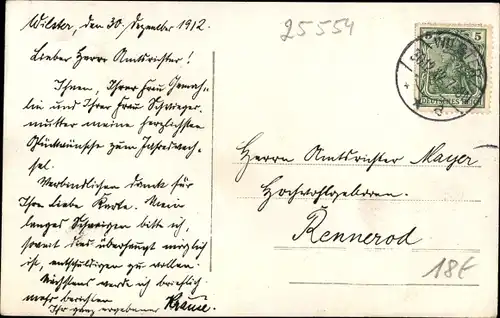 Wilster, den 30. Dezember 1912.
Lieber Herr Amtsrichter!
Ihnen, Ihrer Frau Gemah-
lin und Ihrer Frau Schwieger-
mutter meine herzlichsten
Glückwünsche zum Jahreswech-
sel.
Verbindlichen Dank für
Ihre liebe Karte. Mein
langes Schweigen bitte ich,
soweit dies überhaupt möglich
ist, entschuldigen zu wollen.
Nächstens werde ich brieflich
mehr berichten
Ihr ganz ergebener Krause.
25554
5
WILST
DEUTSCHES REICH
Herrn Amtsrichter Mayer
Hochwohlgeboren.
Rennerod
18E